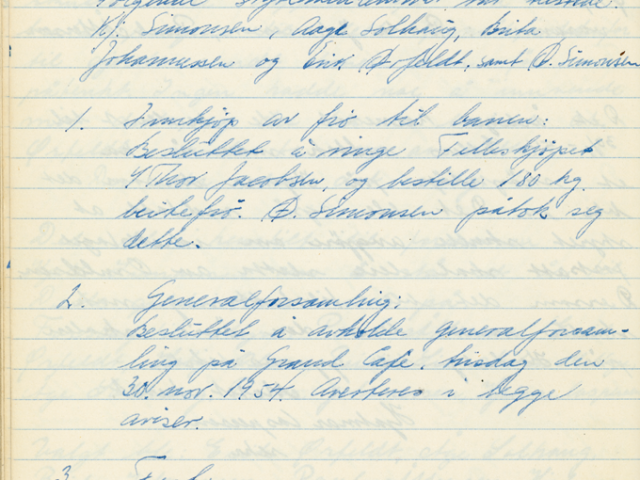 Følgende styremedlemmer var tilstede:
Kj. Simonsen, Aage Solhaug, Brita
Johannessen og Erik Ørfeldt, samt Ø. Simonsen
1. Innkjøp av frø til banen:
Besluttet å ringe Felleskjøpet
v/Thor Jacobsen, og bestille 180 kg.
beitefrø. Ø. Simonsen påtok seg
dette.
2. Generalforsamling:
Besluttet å avholde generalforsam-
ling på Grand Café, tirsdag den
30. nov. 1954. Averteres i begge
aviser.
3.